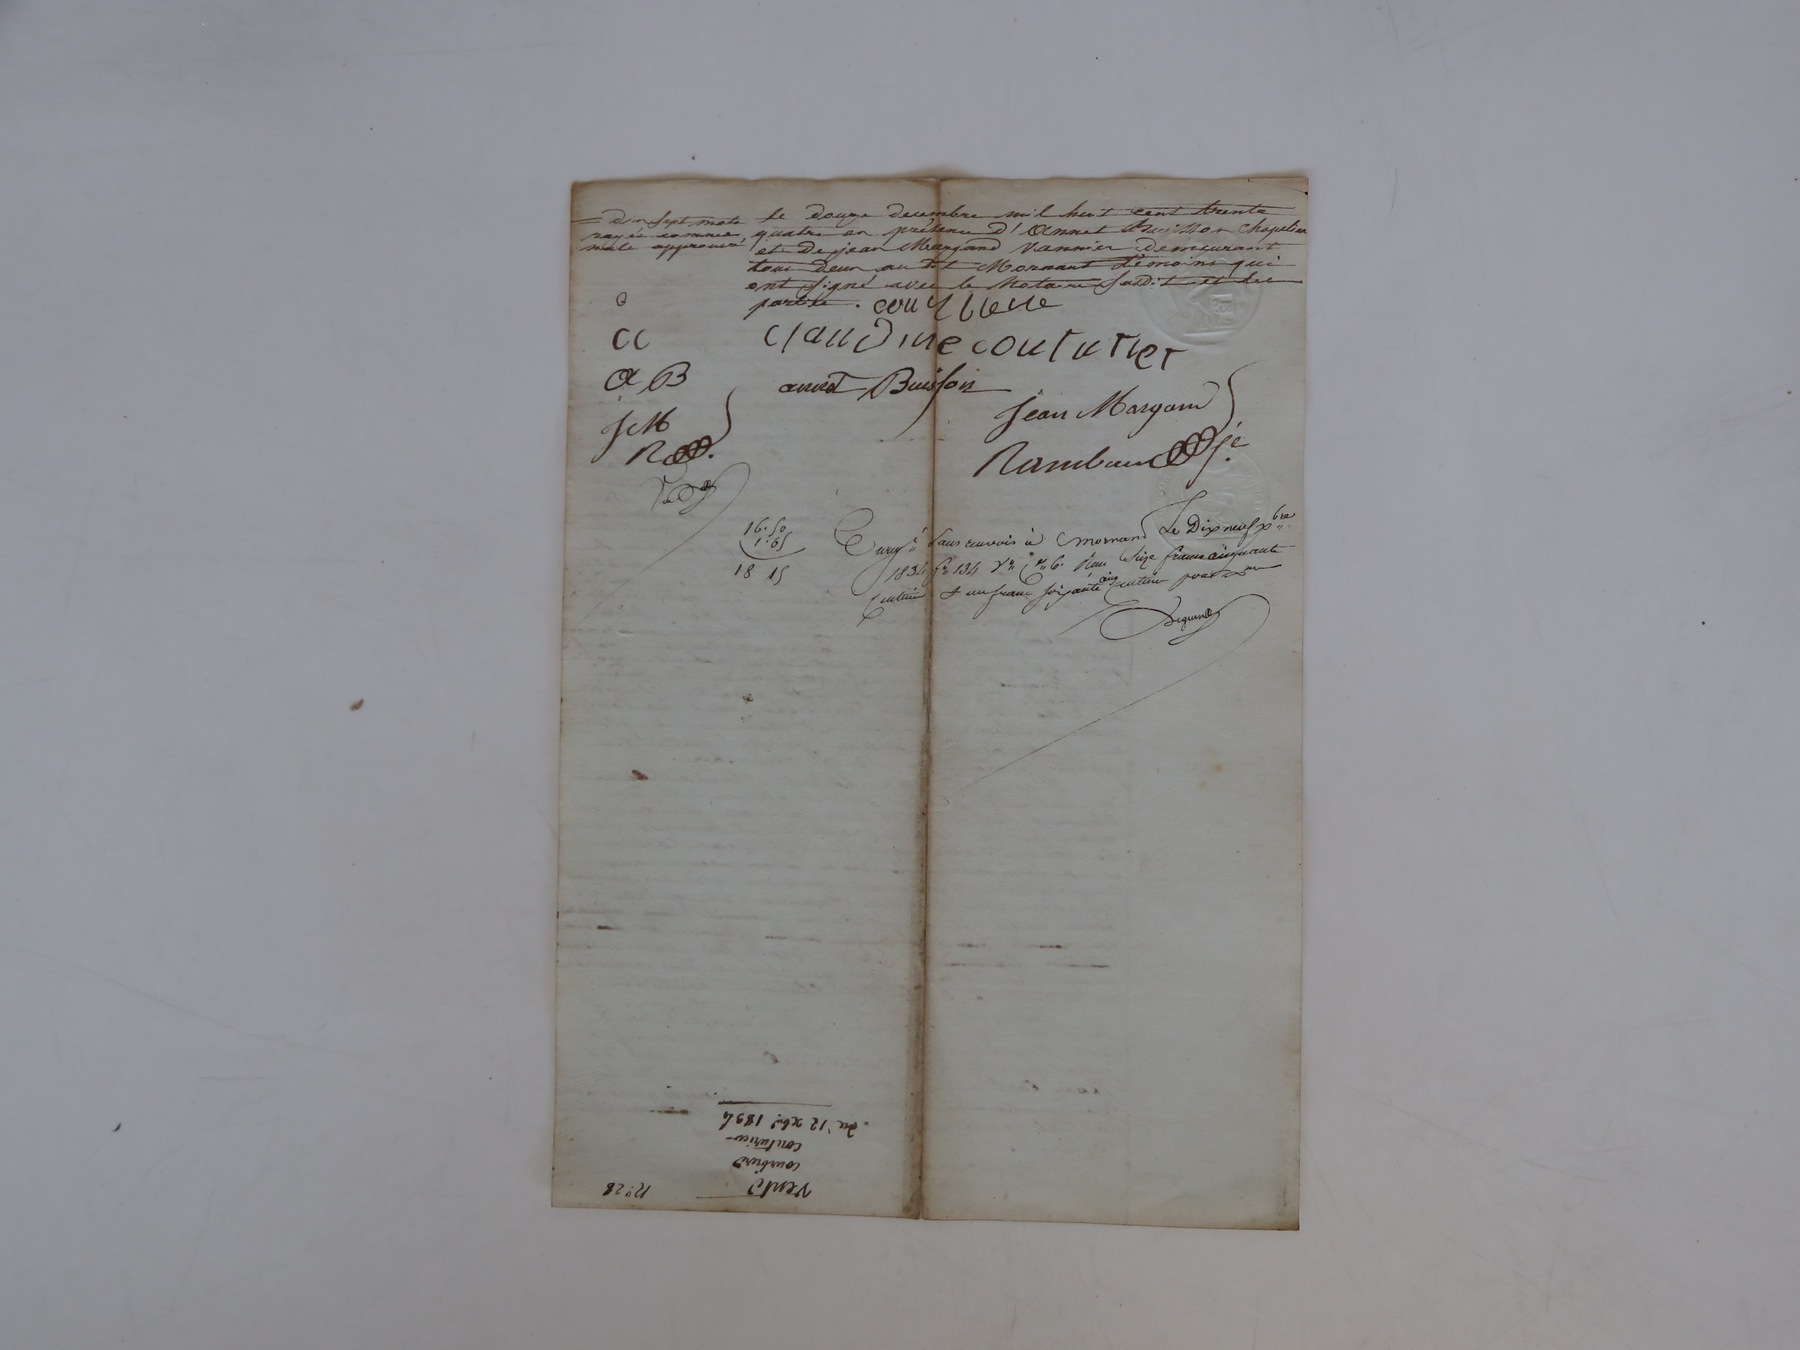 Dix sept mots
rayés comme
nuls approuvés
le douze decembre mil huit cent trente
quatre en présence d'Annet Buisson chapelier
et de jean Margand vannier demeurant
tous deux au dit Mornant témoins qui
ont signé avec le Notaire susdit et les
parties.
C
CC
a B
JM
R
courbiere
claudine couturier
annet Buisson
jean Margand
Rambaud
16.50
1.65
18 15
Enregé sans renvois à Mornant Le Dix neuf Xbre
1834 fo 134 Vo Ce 6. Reçu Seize francs cinquante
centimes & un franc soixante cinq centimes pour Xme
Vente
courbiere
couturier
Du 12 xbre 1834
No 28